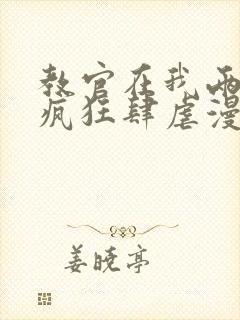 教官在我两
疯狂肆虐漫
姜晓亭